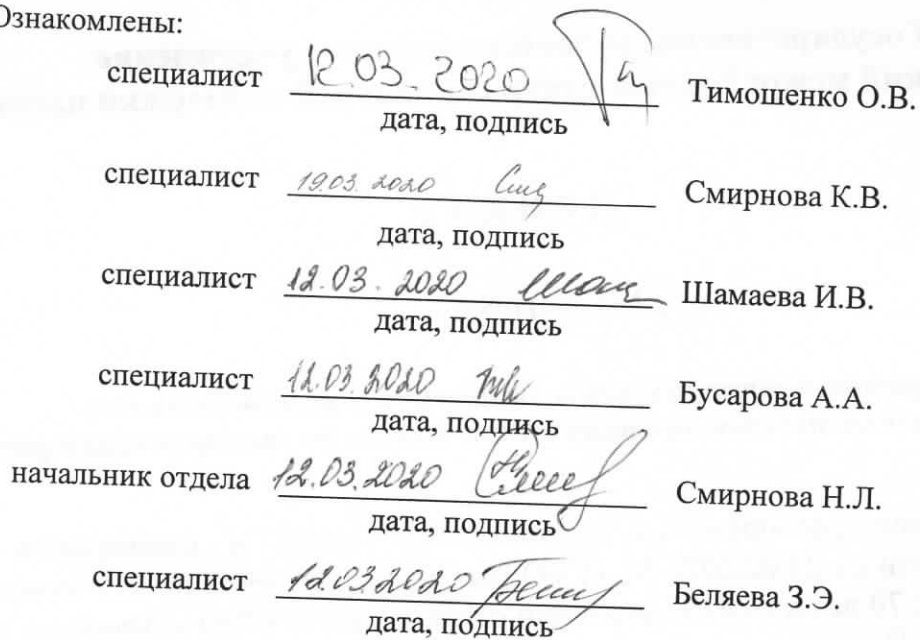 Ознакомлены:
специалист 12.03.2020 Тимошенко О.В.
дата, подпись
специалист 19.03.2020 Смирнова К.В.
дата, подпись
специалист 12.03.2020 Шамаева И.В.
дата, подпись
специалист 12.03.2020 Бусарова А.А.
дата, подпись
начальник отдела 12.03.2020 Смирнова Н.Л.
дата, подпись
специалист 12.03.2020 Беляева З.Э.
дата, подпись